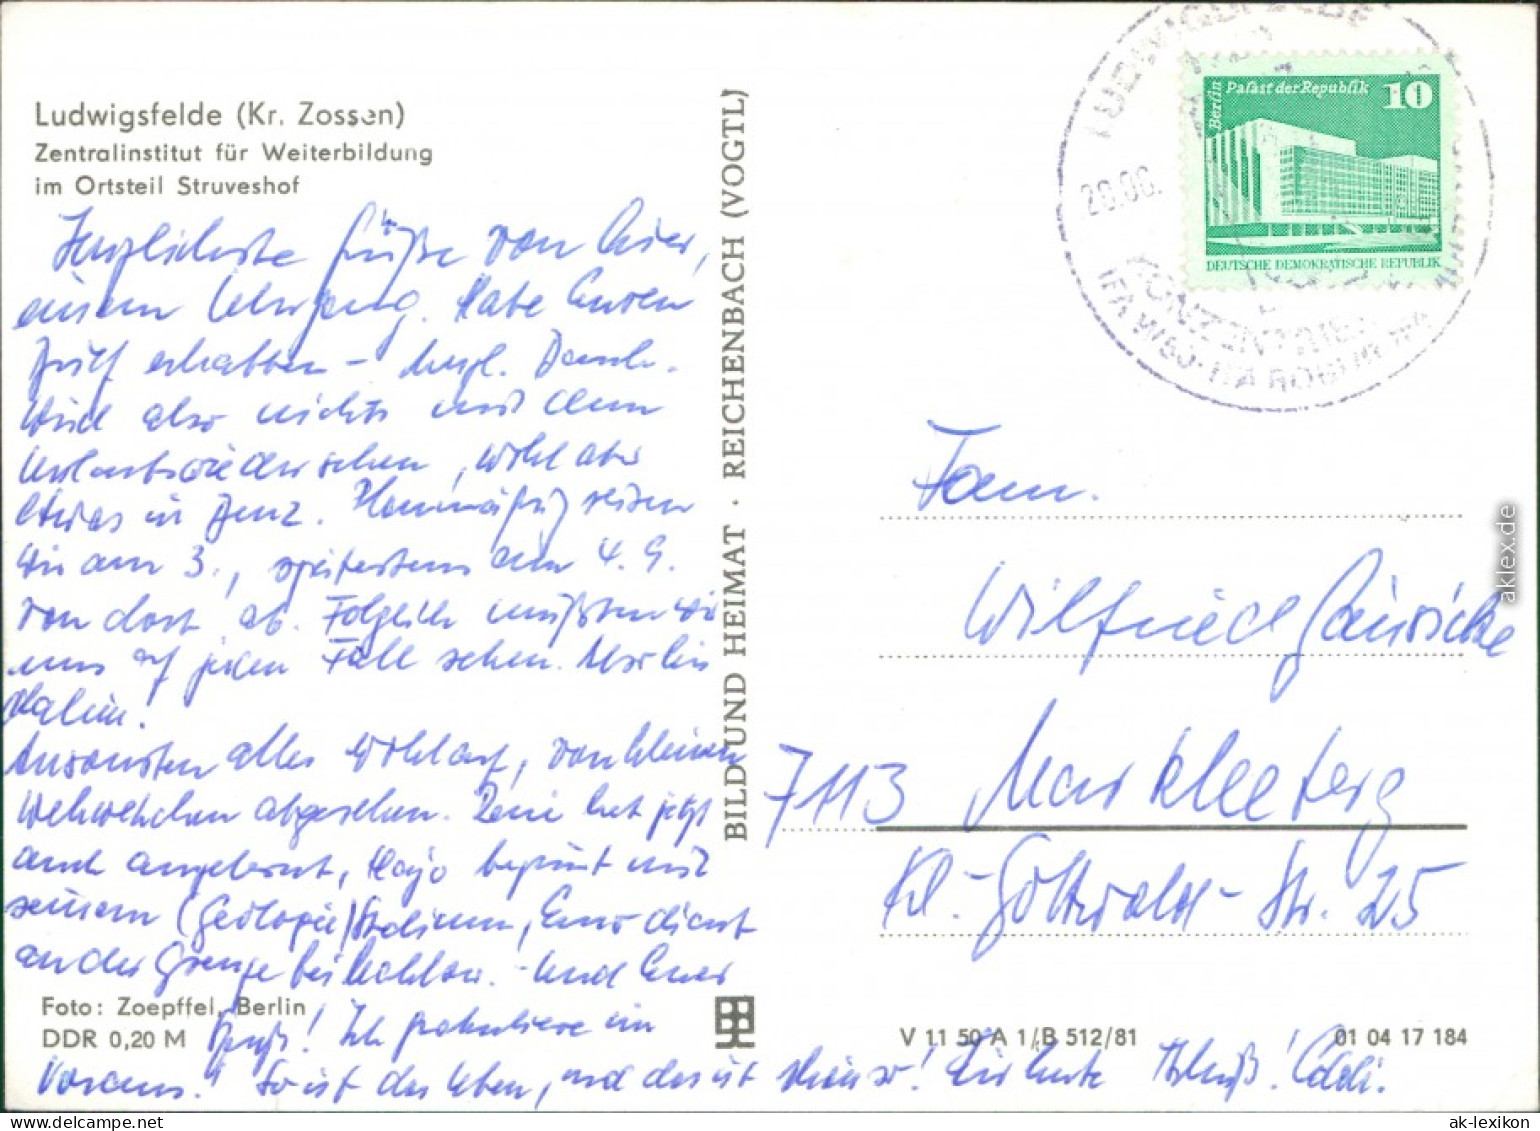 Ludwigsfelde (Kr. Zossen)
Zentralinstitut für Weiterbildung
im Ortsteil Struveshof
Herzlichste Grüße von hier,
einem Lehrgang. Habe Euren
Brief erhalten – herzl. Dank.
Wird also nichts mit dem
Urlaubswiedersehen, wohl aber
etwas in Zinz. Planmäßig reisen
wir am 3., spätestens am 4. 9.
von dort ab. Folglich müßten wir
uns auf jeden Fall sehen.
Ansonsten alles wohlauf, von kleinen
Wehwehchen abgesehen. hat jetzt
auch angelernt, Hajo beginnt mit
seinem (Geologie) Studium, dient
an der Grenze bei Und Euer
! Ich gratuliere im
Voraus! So ist das Leben, und das ist schön so! Für heute Tschüß!
BILD UND HEIMAT · REICHENBACH (VOGTL)
Foto: Zoepffel, Berlin
DDR 0,20 M
V 11 50 A 1/B 512/81
01 04 17 184
LUDWIGSFELDE
28.06.
IFA W50 · IFA
Berlin
Palast der Republik
10
DEUTSCHE DEMOKRATISCHE REPUBLIK
Fam.
Wilfried
7113 Markkleeberg
Kl.-Gottwald-Str. 25
aklex.de
ak-lexikon